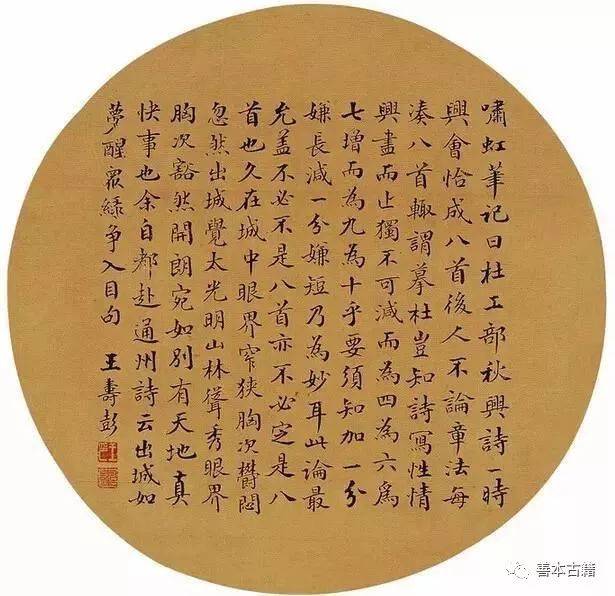 嘯虹筆記曰杜工部秋興詩一時
興會恰成八首後人不論章法每
湊八首輒謂摹杜豈知詩寫性情
興盡而止獨不可減而為四為六爲
七增而為九為十乎要須知加一分
嫌長減一分嫌短乃為妙耳此論最
允蓋不必不是八首亦不必定是八
首也久在城中眼界窄狹胸次鬱悶
忽然出城覺太光明山林聳秀眼界
胸次豁然開朗宛如別有天地真
快事也余自都赴通州詩云出城如
夢醒眾綠争入目句
王壽彭
善本古籍